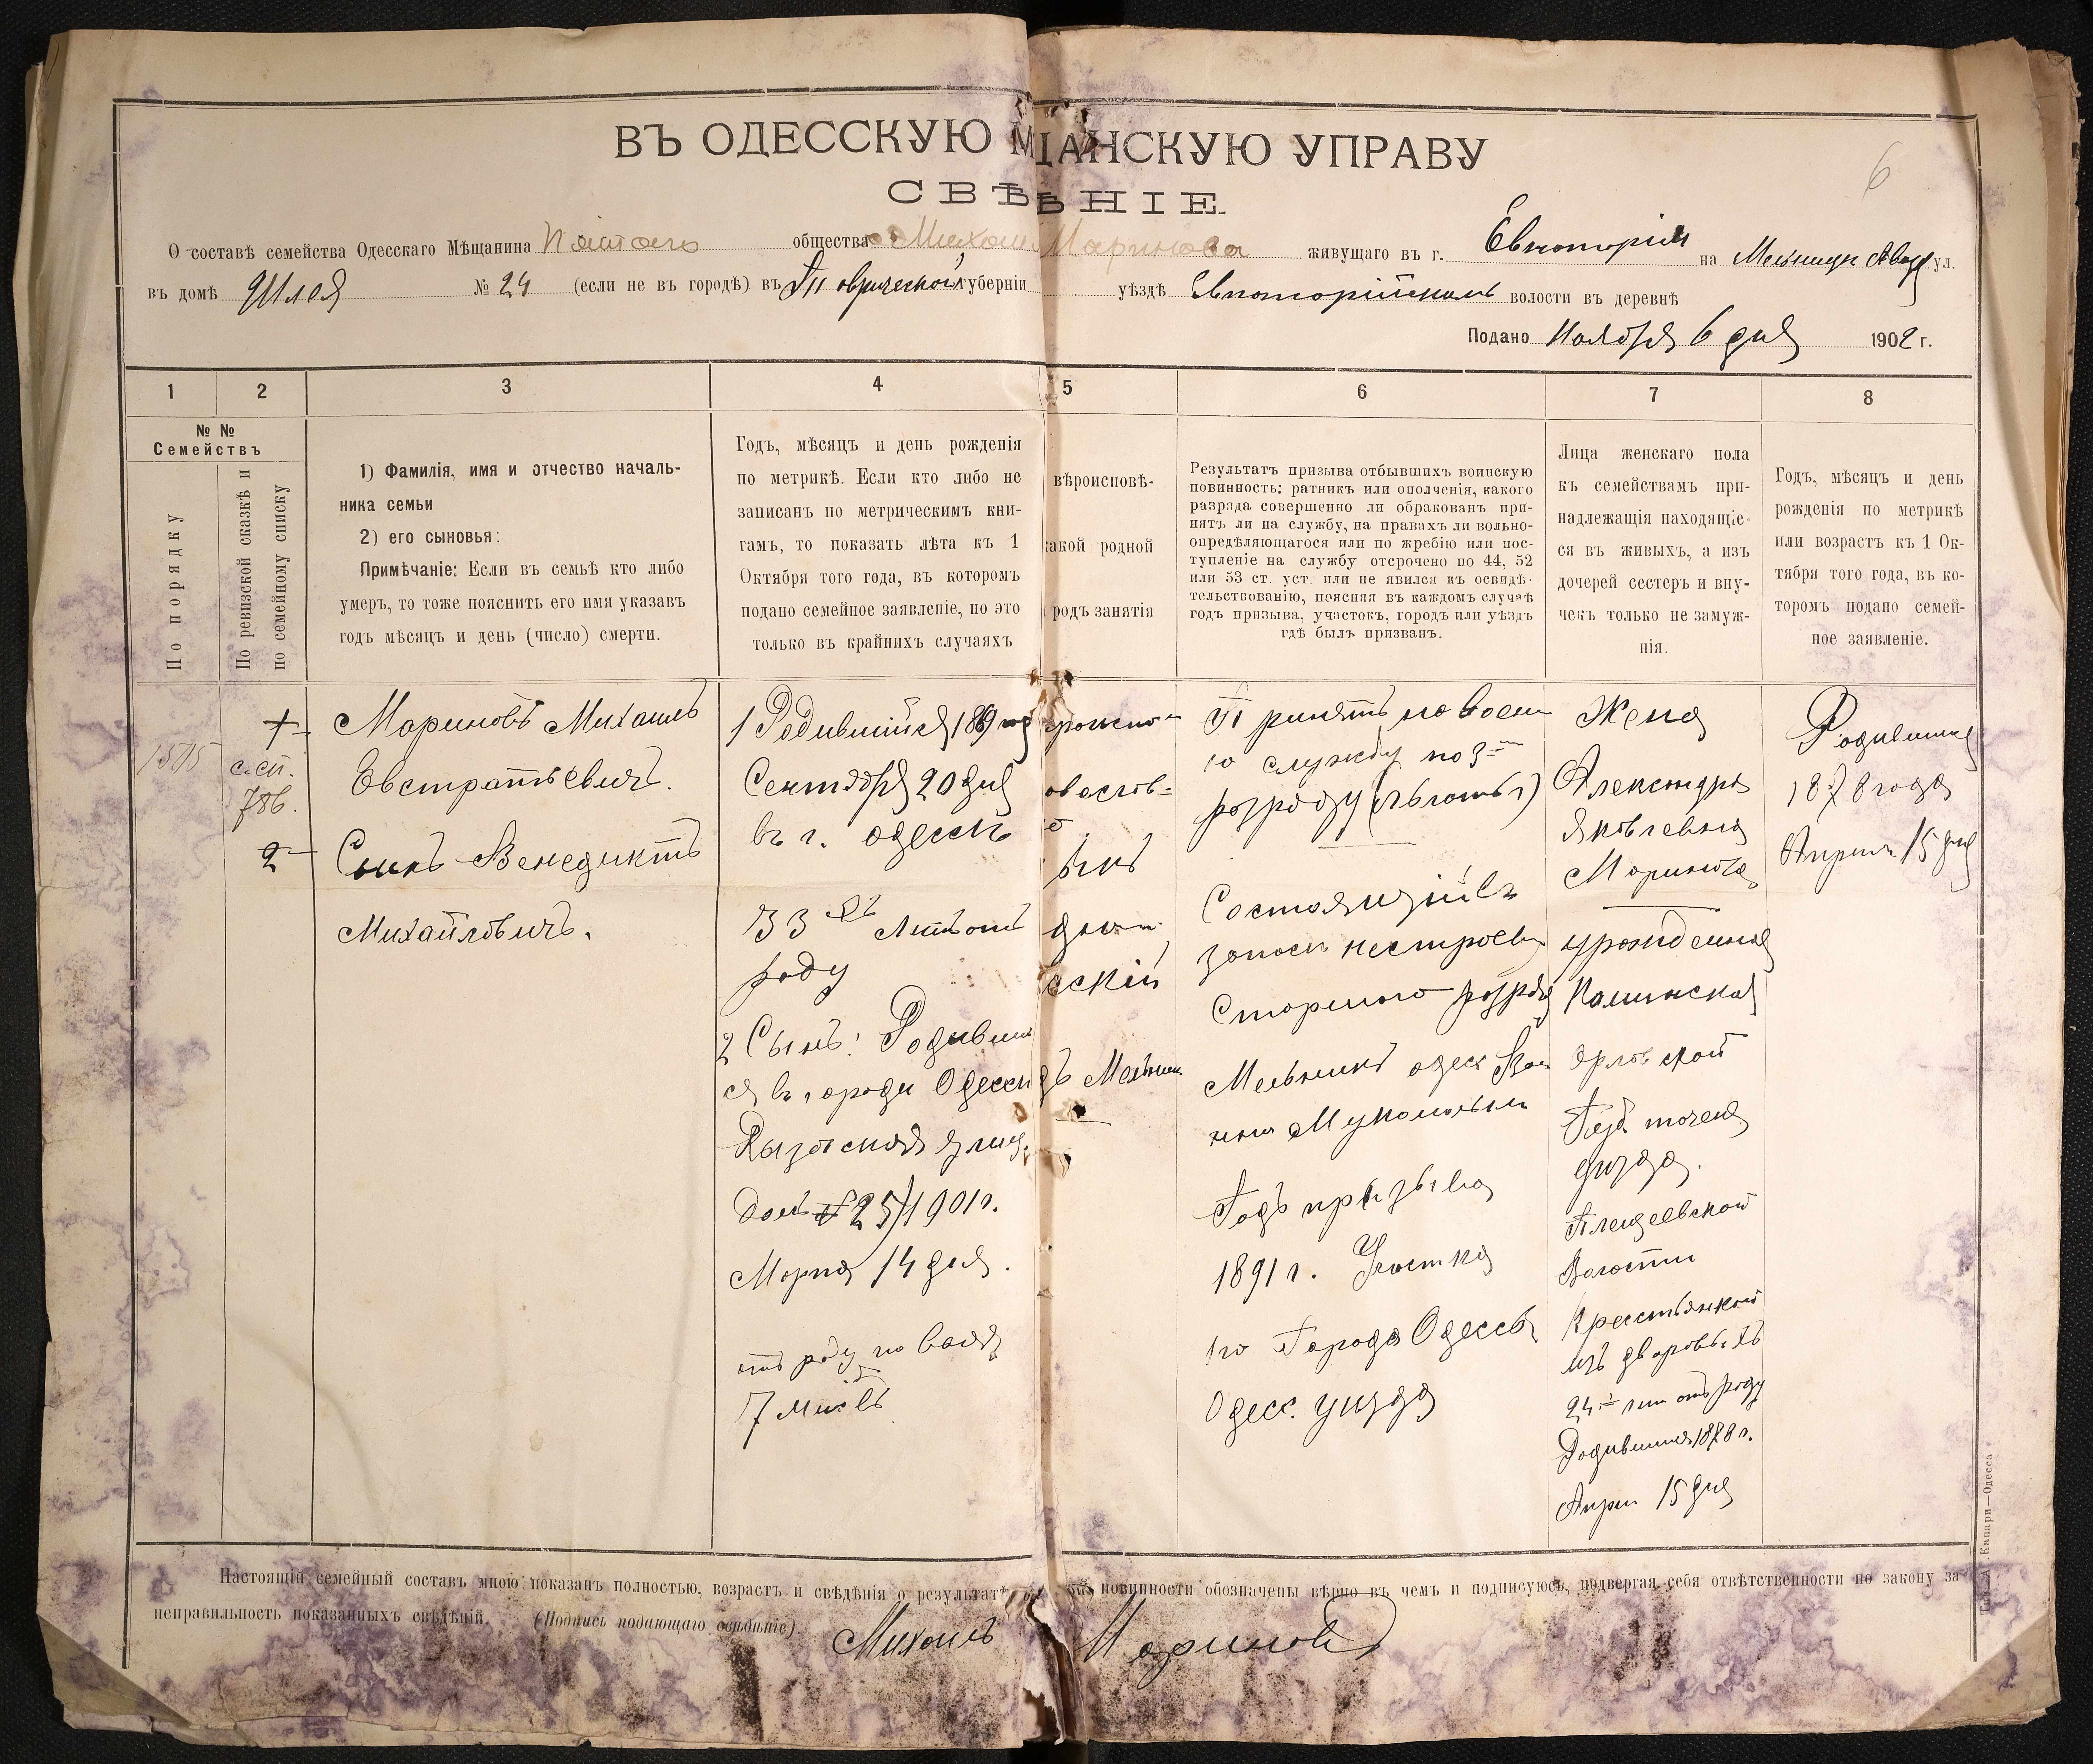 ВЪ ОДЕССКУЮ М ЩАНСКУЮ УПРАВУ
6
СВѢ НІЕ.
О составѣ семейства Одесскаго Мѣщанина Пятаго общества Михаила Маринова живущаго въ г. Евпаторіи на Мельницы ул.
въ домѣ № 24 (если не въ городѣ) въ Таврической губерніи уѣздѣ Евпаторійскомъ волости въ деревнѣ
Подано Ноября 6 дня 1902 г.
1 2 3 4 5 6 7 8
№ №
Семействъ
По порядку
По ревизской сказкѣ и
по семейному списку
1) Фамилія, имя и отчество началь-
ника семьи
2) его сыновья:
Примѣчаніе: Если въ семьѣ кто либо
умеръ, то тоже пояснить его имя указавъ
годъ мѣсяцъ и день (число) смерти.
Годъ, мѣсяцъ и день рожденія
по метрикѣ. Если кто либо не
записанъ по метрическимъ кни-
гамъ, то показать лѣта къ 1
Октября того года, въ которомъ
подано семейное заявленіе, но это
только въ крайнихъ случаяхъ
вѣроисповѣ-
акой родной
родъ занятія
Результатъ призыва отбывшихъ воинскую
повинность: ратникъ или ополченія, какого
разряда совершенно ли обракованъ при-
нятъ ли на службу, на правахъ ли вольно-
опредѣляющагося или по жребію или пос-
тупленіе на службу отсрочено по 44, 52
или 53 ст. уст. или не явился къ освидѣ-
тельствованію, поясняя въ каждомъ случаѣ
годъ призыва, участокъ, городъ или уѣздъ
гдѣ былъ призванъ.
Лица женскаго пола
къ семействамъ при-
надлежащія находящіе-
ся въ живыхъ, а изъ
дочерей сестеръ и вну-
чекъ только не замуж-
нія.
Годъ, мѣсяцъ и день
рожденія по метрикѣ
или возрастъ къ 1 Ок-
тября того года, въ ко-
торомъ подано семей-
ное заявленіе.
1515
с. сп.
786.
2
Мариновъ Михаилъ
Евстратьевичъ.
Сынъ Венедиктъ
Михайловичъ.
1 Родившійся 1869 год
Сентября 20 дня
въ г. Одессѣ
33 хъ Лѣтъ отъ
роду
2 Сынъ: Родивши
ся въ городи Одесси
улиц.
домъ № 25/1901 г.
Марта 14 дня.
отъ роду
7 мисѣ
скій
дъ Мельник
Принятъ на воен
ю службу по 3
розряду (льготы)
Состоящій въ
запаси нестроевы
Старшаго розряд
Мельникъ одес
Мукомольн
Годъ призыва
1891 г. Участка
1го Города Одессы
Одесс. уизда
Жена
Александра
Яковлевна
Маринова
урожденная
Калинская
Орловской
Губ.
уизда.
Плещеевской
Волости
Крестьянкой
изъ дворовыхъ
24 отъ роду
Родившися 1878 г.
Апри 15 дня
Родившися
1878 года
Априля 15 дня
Настоящій семейный составъ мною показанъ полностью, возрастъ и свѣдѣнія о результатѣ повинности обозначены вѣрно въ чемъ и подписуюсь, подвергая себя отвѣтственности по закону за
неправильность показанныхъ свѣдѣній. (Подпись подающаго свѣдѣніе). Михаилъ Мариновъ
Капари—Одесса